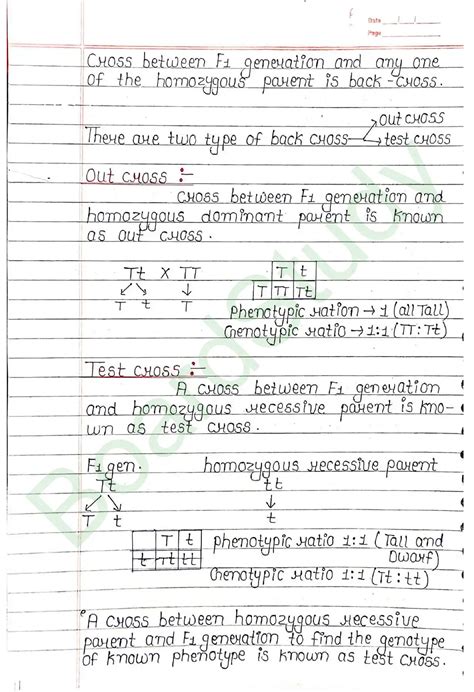 Date / /
Page
Cross between F1 generation and any one
of the homozygous parent is back-cross.
There are two type of back cross → out cross
→ test cross
Out cross :-
Cross between F1 generation and
homozygous dominant parent is known
as out cross.
Tt X TT
T t T
T t
T TT Tt
Phenotypic ration → 1 (all Tall)
Genotypic ratio → 1:1 (TT:Tt)
Test cross :-
A cross between F1 generation
and homozygous recessive parent is kno-
wn as test cross.
F1 gen. homozygous recessive parent
Tt tt
T t t
T t
t Tt tt
phenotypic ratio 1:1 (Tall and
Dwarf)
Genotypic ratio 1:1 (Tt:tt)
A cross between homozygous recessive
parent and F1 generation to find the genotype
of known phenotype is known as test cross.
BoardStudy